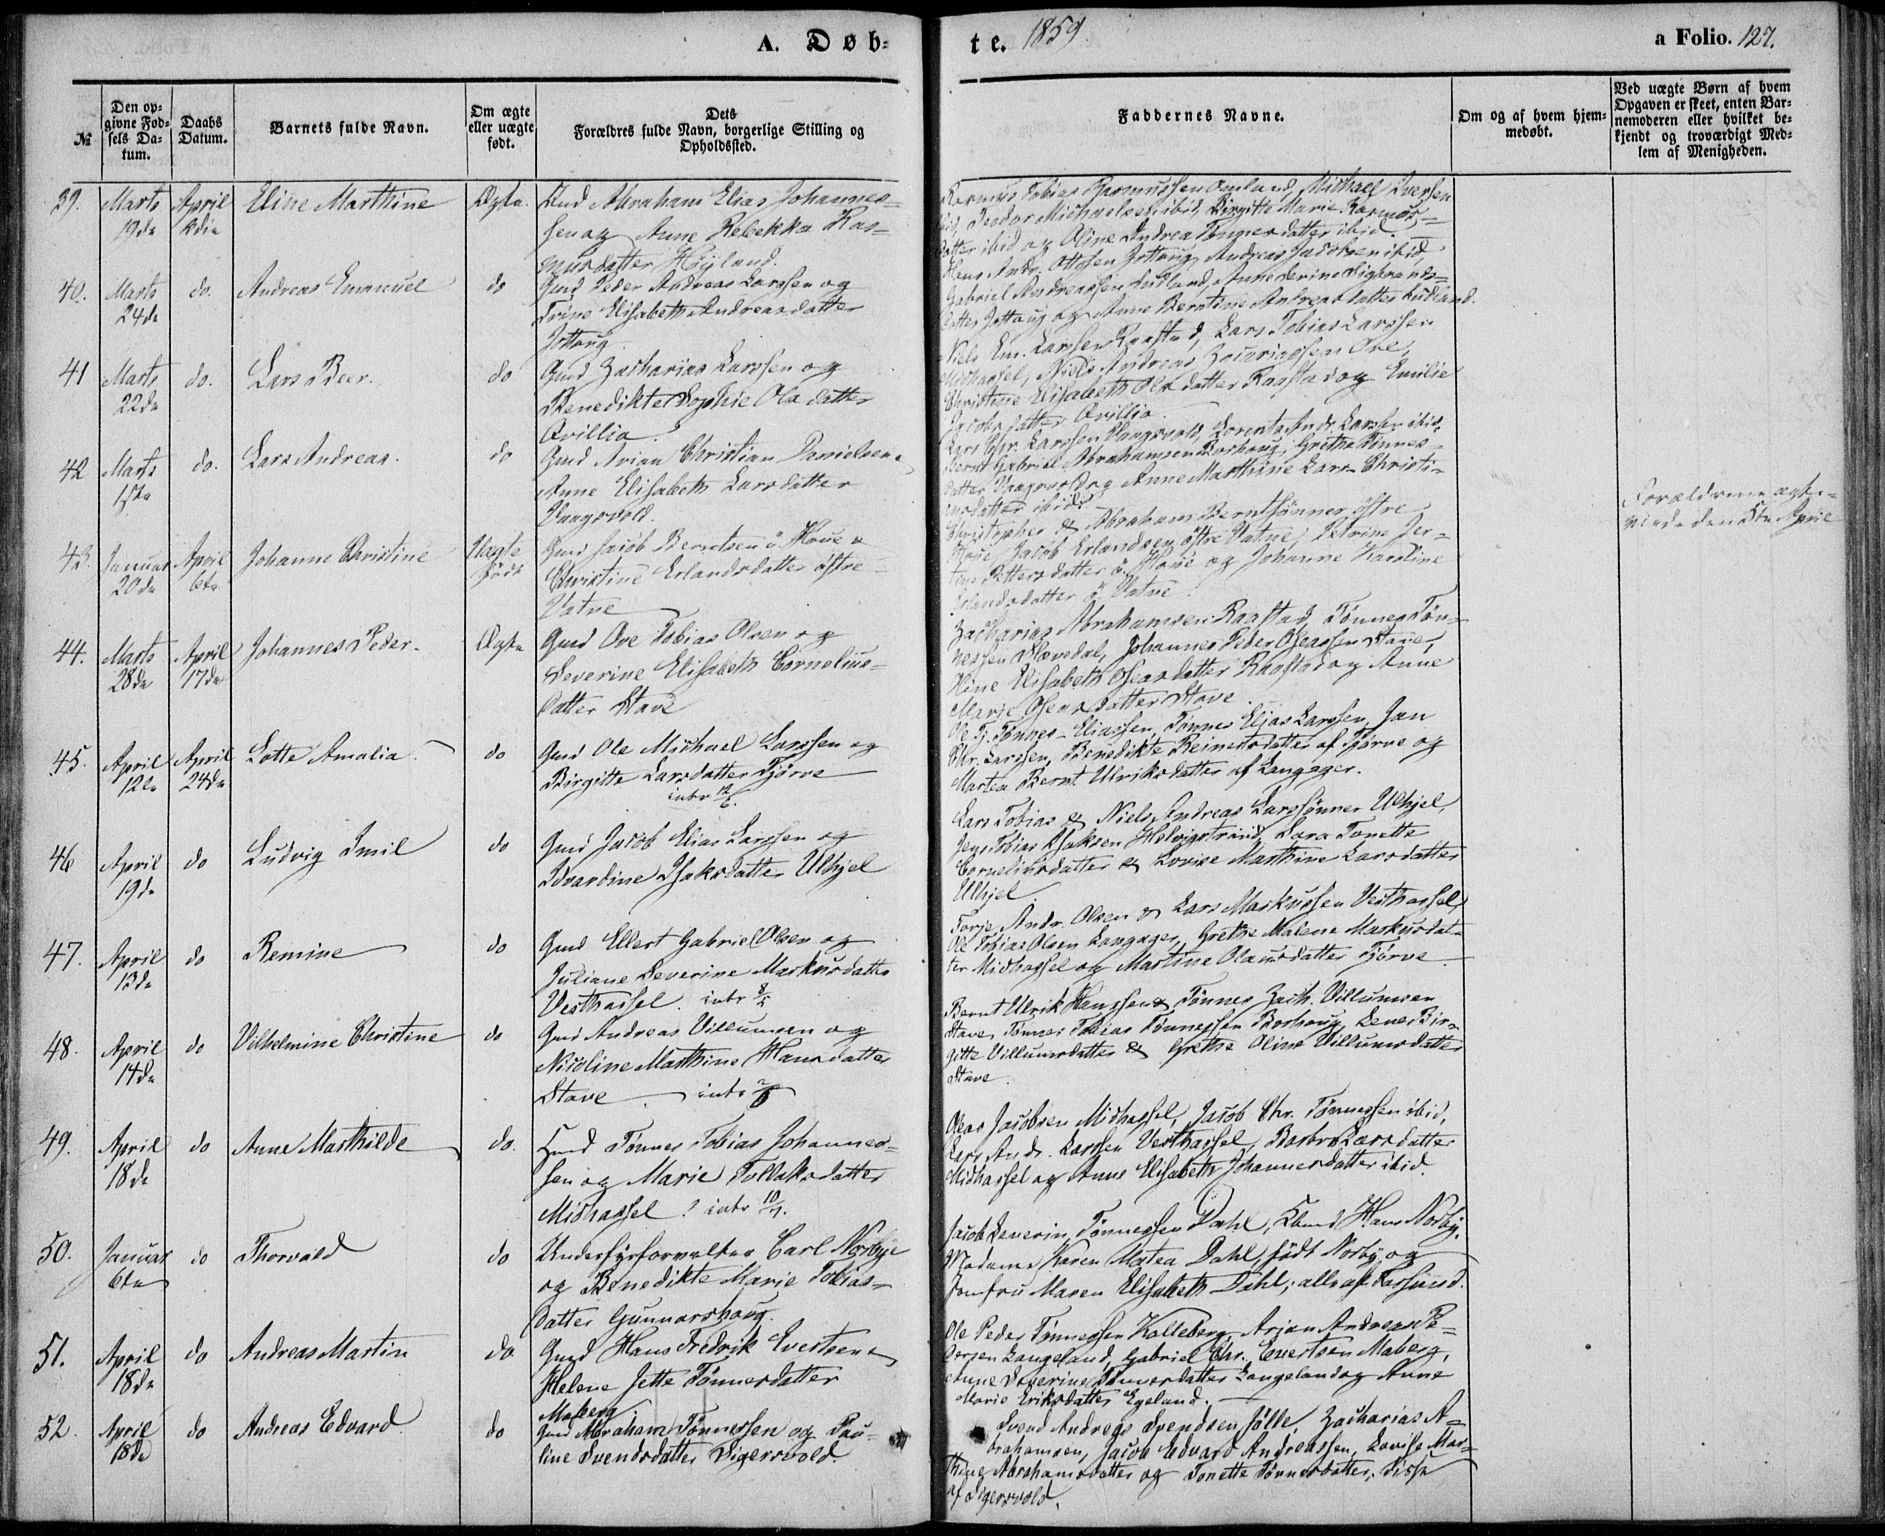 A. Døb-
te. 1859
a Folio. 127.
№
Den op-
givne Fød-
sels Da-
tum.
Daabs
Datum.
Barnets fulde Navn.
Om ægte
eller uægte
født.
Dets
Forældres fulde Navn, borgerlige Stilling og
Opholdssted.
Faddernes Navne.
Om og af hvem hjem-
medøbt.
Ved uægte Børn af hvem
Opgaven er skeet, enten Bar-
nemoderen eller hvilket be-
kjendt og troværdigt Med-
lem af Menigheden.
39. Marts 19de April Eline Marthine Ægte. Abraham Elias Johannes-
sen og Anne Rebekka Ras-
musdatter Høyland.
Rasmus Tobias Rasmussen Omland, Michael Iversen
ibid, Teodor Michaelsen ibid, Birgitte Marie Rasmus-
datter ibid og Oline Andrea Tønnesdatter ibid.
40. Marts 24de do. Andreas Emanuel do Gmd Peder Andreas Larssen og
Trine Elisabeth Andreasdatter
Jøttoug
Hans Andr. Ottesen Jøttoug, Andreas Jacobsen ibid,
Gabriel Andreassen Lunland, Anne Serine Sigbrands-
datter Jøttoug og Anne Berntine Andreasdatter
41 Marts 22de do. Lars Peer. do Gmd Zacharias Larssen og
Benedikte Sophie Olsdatter
Qvillio.
Niels Em. Larssen Raastad, Lars Tobias Larssen
Midhassel, Niels Andreas Zacariassen Ore,
Christine Elisabeth Olsdatter Raastad og Emilie
Jacobsdatter Qvillio.
42 Marts 15de do. Lars Andreas. do Gmd Arian Christian Danielsen
Anne Elisabeth Larsdatter
Vaagsvold.
Lars Chr. Larssen Vaagsvold, Lorents Andr. Larssen ibid,
Bernt Gabriel Abrahamsen Borhoug, Grethe Tønnes-
datter Vaagsvold og Anne Marthine Lars Christi-
ansdatter ibid
43. Januar 20de April 6te Johanne Christine Uægte
født Gmd Jacob Berntsen ö. Haue &
Christine Erlandsdatter østre
Vatne
Christopher & Abraham Berntsønner østre
Haue, Jacob Erlandsen østre Vatne, Petrine Jer-
tine Pettersdatter ö. Haue og Johanne Karoline
Erlandsdatter ö Vatne
Forældrene
den 5te April
44. Marts 28de April 17de Johannes Peder. Ægte Gmd Ove Tobias Olsen og
Severine Elisabeth Cornelius-
datter Stave
Zacharias Abrahamsen Raastad, Tønnes Tøn-
nessen Slævedal, Johannes Peder Oseassen Stave,
Oline Elisabeth Oseasdatter Raastad og Anne
Marie Oseasdatter Stave
45. April 12te April 24de Lotte Amalia do Gmd Ole Michael Larssen og
Birgitte Larsdatter Tjørve
intr 12/6.
Ole Tj. Tønnes Eliassen, Tønnes Elias Larssen, Jan
Chr. Larssen, Benedikte Reinertsdatter af Tjørve og
Martea Bernt Ulriksdatter af Langager.
46 April 19de do Ludvig Emil do Gmd Jacob Elias Larssen og
Edvardine Isaksdatter Ulhjel
Lars Tobias & Niels Andreas Larssønner Ulhjel,
Jens Tobias Isaksen Helvigstrand, Lara Tonette
Corneliusdatter & Lovise Marthine Larsdatter
Ulhjel
47. April 13de do Remine do Gmd Ellert Gabriel Olsen og
Juliane Severine Markusdatter
Vesthassel. intr 8/5
Torje Andr. Olsen & Lars Markussen Vesthassel,
Ole Tobias Olsen Langager, Grethe Malene Markusdat-
ter Midhassel og Martine Olausdatter Tjørve
48. April 14de do Vilhelmine Christine do Gmd Andreas Villumsen og
Nicoline Marthine Hansdatter
Stave intr
Bernt Ulrik Hanssen & Tønnes Zach. Villumsen
Stave, Tønnes Tobias Tønnessen Borhoug, Lene Bir-
gitte Villumsdatter & Grethe Oline Villumsdatter
Stave.
49. April 18de do Anne Marthilde do. Hmd Tønnes Tobias Johannes-
sen og Marie Tollaksdatter
Midhassel intr 10/7.
Oleas Jacobsen Midhassel, Jacob Chr. Tønnessen ibid,
Lars Andr. Larssen Vesthassel, Barbro Larsdatter
Midhassel og Anne Elisabeth Johannesdatter ibid.
50. Januar 6te do Thorvald do Underfyrforvalter Carl Norbye
og Benedikte Marie Tobias-
datter Gunnarshoug.
Jacob Severin Tønnessen Dahl, Hans Norby,
Madame Karen Matea Dahl, født Norby, og
Jomfru Maren Elisabeth Dahl, alle af Farsund.
51. April 18de do Andreas Martin do Gmd Hans Fredrik Evertsen
Helene Jette Tønnesdatter
Maberg
Ole Peder Tønnessen Kalleberg, Arian Andreas Pe-
dersen Langeland, Gabriel Chr. Evertsen Maberg,
Anne Severine Tønnesdatter Langeland og Anne
Marie Eriksdatter Egeland.
52. April 18de do Andreas Edvard do Gmd Abraham Tønnessen og Pau-
line Svendsdatter Digersvold.
Svend Andreas Svendsen Jølle, Zacharias A-
brahamsen, Jacob Edvard Andreassen, Lovise Mar-
thine Abrahamsdatter og Tonette Tønnesdatter, disse
af Digersvold.